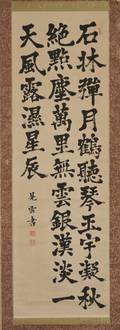 石牀彈月鶴聽琴玉宇凝秋
絶點塵萬里無雲銀漢淡一
天風露濕星辰